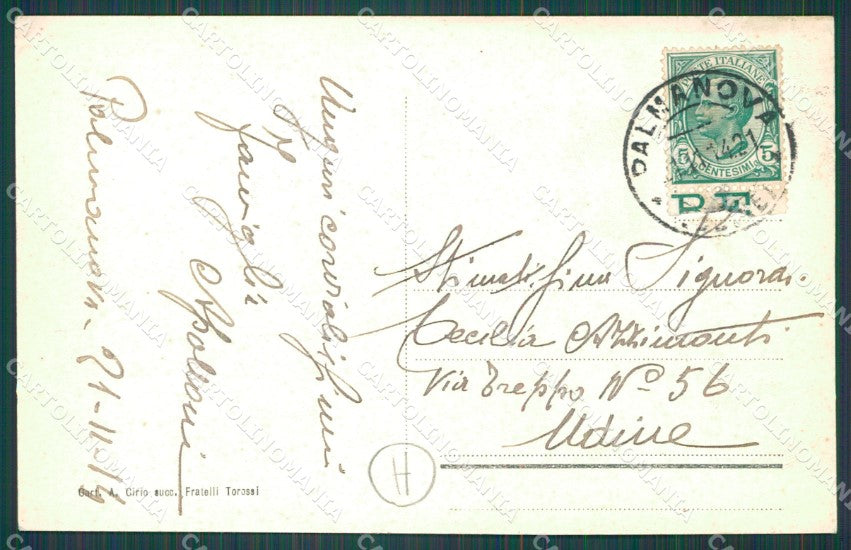 Palmanova - 21-11-14
Auguri cordialissimi
Famiglia
POSTE ITALIANE
5 CENTESIMI 5
PALMANOVA
Stimatissima Signora
Cecilia Azzimonti
Via Treppo No 56
Udine
H
Cart. A. Cirio succ. Fratelli Torossi
CARTOLINOMANIA